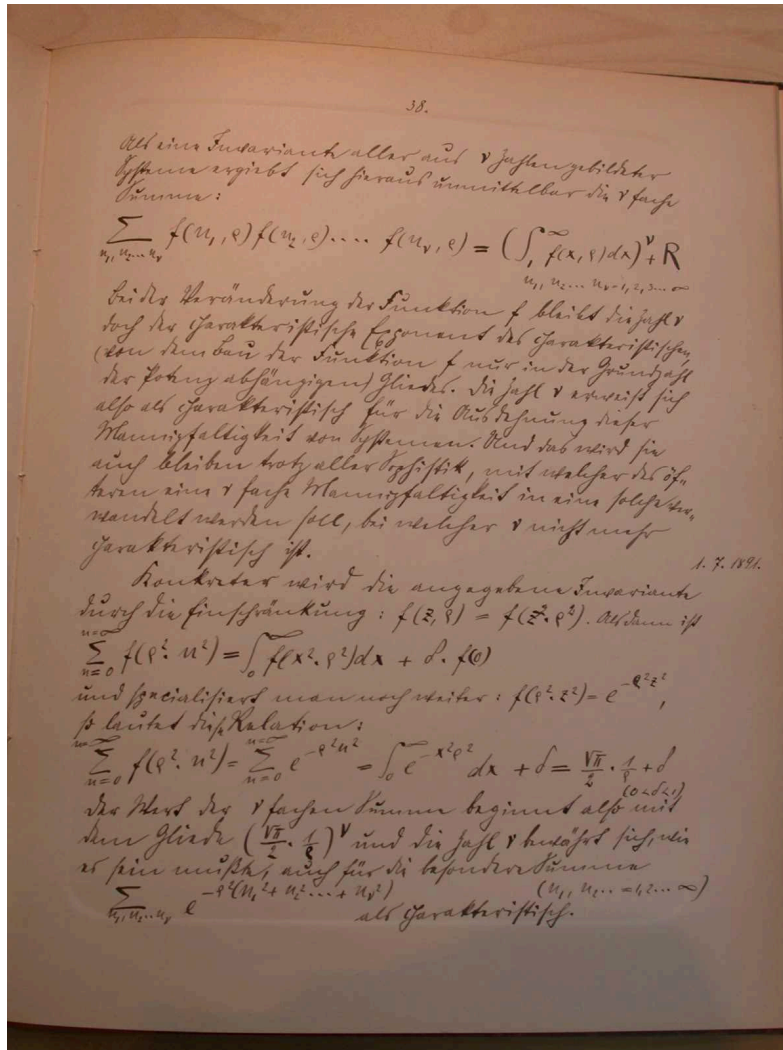 38.
Als eine Invariante aller aus ν Zahlen gebildeter
Systeme ergiebt sich hieraus unmittelbar die ν fache
Summe:
∑ f(n₁,ϱ) f(n₂,ϱ).... f(n_ν,ϱ) = (∫₁^∞ f(x,ϱ)dx)^ν + R
n₁, n₂... n_ν n₁, n₂... n_ν = 1, 2, 3... ∞
Bei der Veränderung der Funktion f bleibt die Zahl ν
doch der charakteristische Exponent des charakteristischen
(von dem Bau der Funktion f nur in der Grundzahl
der Potenz abhängigen) Gliedes. Die Zahl ν erweist sich
also als charakteristisch für die Ausdehnung dieser
Mannigfaltigkeit von Systemen. Und das wird sie
auch bleiben trotz aller Sophistik, mit welcher des öf-
teren eine ν fache Mannigfaltigkeit in eine solche ver-
wandelt werden soll, bei welcher ν nicht mehr
charakteristisch ist.
1. 7. 1891.
Konkreter wird die angegebene Invariante
durch die Einschränkung: f(z, ϱ) = f(z²·ϱ²). Alsdann ist
∑_{n=0}^{n=∞} f(ϱ²·n²) = ∫₀^∞ f(x²·ϱ²)dx + δ·f(0)
und specialisiert man noch weiter: f(ϱ²·z²) = e^{-ϱ²z²},
so lautet diese Relation:
∑_{n=0}^{n=∞} f(ϱ²·n²) = ∑_{n=0}^{n=∞} e^{-ϱ²n²} = ∫₀^∞ e^{-x²ϱ²} dx + δ = √π/2 · 1/ϱ + δ
(0<δ<1)
Der Wert der ν fachen Summe beginnt also mit
dem Gliede (√π/2 · 1/ϱ)^ν und die Zahl ν bewährt sich, wie
es sein mußte, auch für die besondere Summe
∑_{n₁, n₂... n_ν} e^{-ϱ²(n₁²+n₂²...+n_ν²)} (n₁, n₂... = 1, 2... ∞)
als charakteristisch.